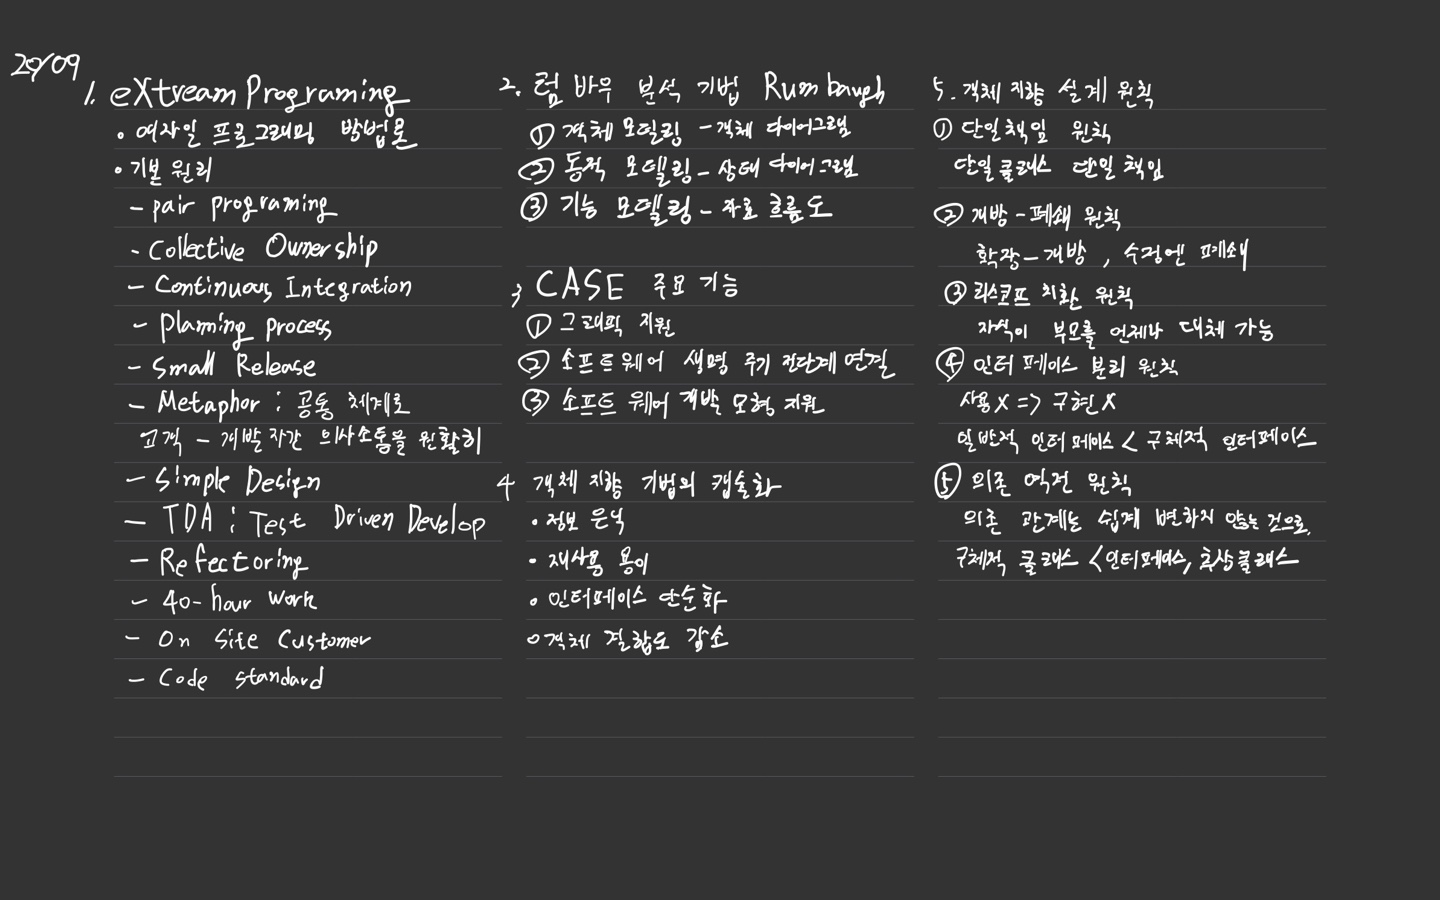 20/09
1. eXtream Programing
• 애자일 프로그래밍 방법론
• 기본 원리
- pair programing
- Collective Ownership
- Continuous Integration
- Planning process
- Small Release
- Metaphor : 공통 체계로
고객 - 개발자간 의사소통을 원활히
- Simple Design
- TDA : Test Driven Develop
- Refectoring
- 40-hour work
- On Site Customer
- Code standard
2. 럼바우 분석 기법 Rumbaugh
① 객체 모델링 - 객체 다이어그램
② 동적 모델링 - 상태 다이어그램
③ 기능 모델링 - 자료 흐름도
3 CASE 주요 기능
① 그래픽 지원
② 소프트웨어 생명 주기 전단계 연결
③ 소프트웨어 개발 모형 지원
4 객체 지향 기법의 캡슐화
• 정보 은닉
• 재사용 용이
• 인터페이스 단순화
• 객체 결합도 감소
5. 객체 지향 설계 원칙
① 단일책임 원칙
단일 클래스 단일 책임
② 개방-폐쇄 원칙
확장-개방, 수정엔 폐쇄
③ 리스코프 치환 원칙
자식이 부모를 언제나 대체 가능
④ 인터페이스 분리 원칙
사용X => 구현X
일반적 인터페이스 < 구체적 인터페이스
⑤ 의존 역전 원칙
의존 관계는 쉽게 변하지 않는 것으로,
구체적 클래스 < 인터페이스, 추상클래스